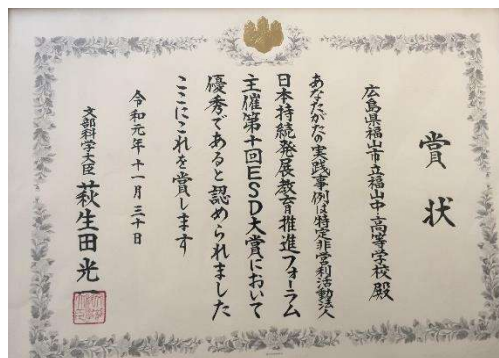 賞状
広島県福山市立福山中・高等学校 殿
あなたがたの実践事例は特定非営利活動法人
日本持続発展教育推進フォーラム
主催第十回ESD大賞において
優秀であると認められました
ここにこれを賞します
令和元年十一月三十日
文部科学大臣 萩生田光一